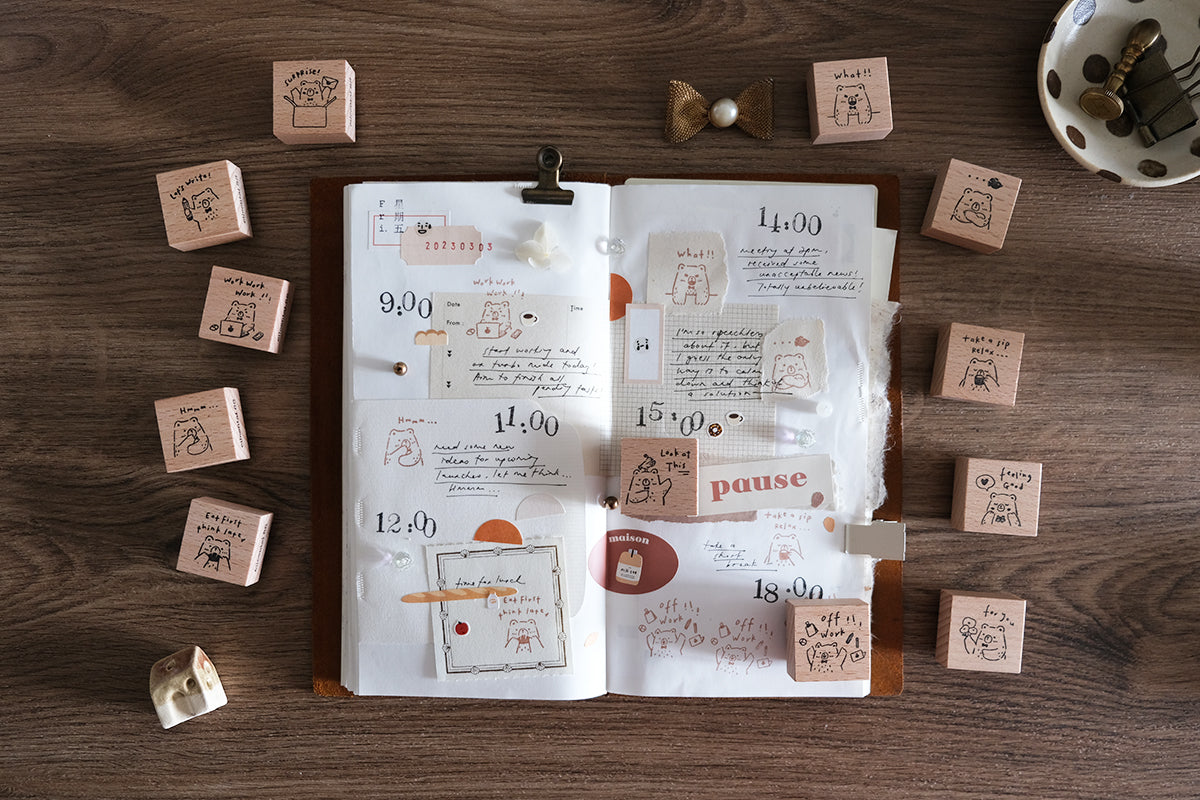 SURPRISE!
What!!
Let's write!
Work Work
Work..!!
Hmmm...
Eat First
think late.
take a sip
Relax...
feeling
Good
for you
Fri.
星期五
20230303
9:00
Work Work
Work..!!
Date
Time
From
start working and
on turbo mode today!
Aim to finish all
11:00
Hmmm...
need some new
ideas for upcoming
launches, let me think...
Hmmm...
12:00
time for lunch
Eat First
think late.
14:00
meeting at 2pm,
received some
unacceptable news!
Totally unbelievable!
What!!
I'm so speechless
about it, but
I guess the only
way is to calm
down and think of
a solution
15:00
Look at
This
pause
take a sip
Relax...
maison
take a
short
break
18:00
off !!!
Work
off !!!
Work
off !!!
Work